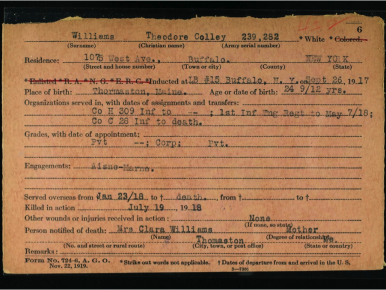 6
Williams Theodore Colley 239,282 * White * Colored.
(Surname) (Christian name) (Army serial number)
Residence: 1075 West Ave., Buffalo. NEW YORK
(Street and house number) (Town or city) (County) (State)
* Enlisted * R. A. * N. G. * E. R. C. * Inducted at LB #15 Buffalo, N. Y. on Sept 26, 1917
Place of birth: Thormaston, Maine. Age or date of birth: 24 9/12 yrs.
Organizations served in, with dates of assignments and transfers:
Co H 309 Inf to -- ; 1st Inf Tng Regt to May 7/18;
Co C 28 Inf to death.
Grades, with date of appointment:
Pvt --; Corp; Pvt.
Engagements: Aisne-Marne.
Served overseas from Jan 23/18. to † death. from † to †
Killed in action July 19 1918
Other wounds or injuries received in action: None
(If none, so state)
Person notified of death: Mrs Clara Williams Mother
(Name) (Degree of relationship)
Thomaston
(No. and street or rural route) (City, town, or post office) (State or country)
Remarks:
Form No. 724-8, A. G. O.
Nov. 22, 1919.
* Strike out words not applicable. † Dates of departure from and arrival in the U. S.